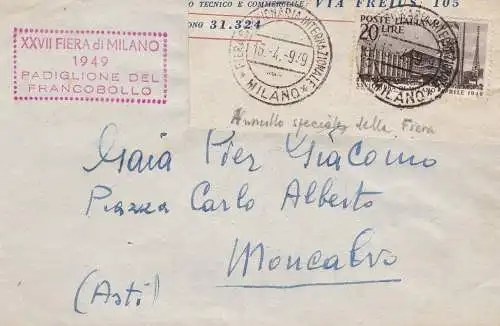 TECNICO E COMMERCIALE: VIA FREJUS, 105
ONO 31.324
XXVII FIERA di MILANO
1949
PADIGLIONE DEL
FRANCOBOLLO
INTERNAZIONALE
15.-4.-949
* MILANO *
POSTE ITALIANE
20
LIRE
MILANO
APRILE 1949
Annullo speciale della Fiera
Gaia Pier Giacomo
Piazza Carlo Alberto
Moncalvo
(Asti)